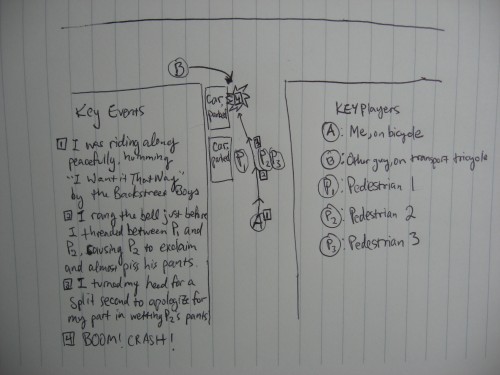 B
Car,
parked
4
Key Events
KEY Players
Car,
parked
P1
3
P2
P3
2
A
1
1 I was riding along
peacefully, humming
"I Want it That Way"
by the Backstreet Boys
2 I rang the bell just before
I threaded between P1 and
P2, causing P2 to exclaim
and almost piss his pants.
3 I turned my head for a
split second to apologize for
my part in wetting P2's pants
4 BOOM! CRASH!
A: Me, on bicycle
B: Other guy, on transport tricycle
P1: Pedestrian 1
P2: Pedestrian 2
P3: Pedestrian 3